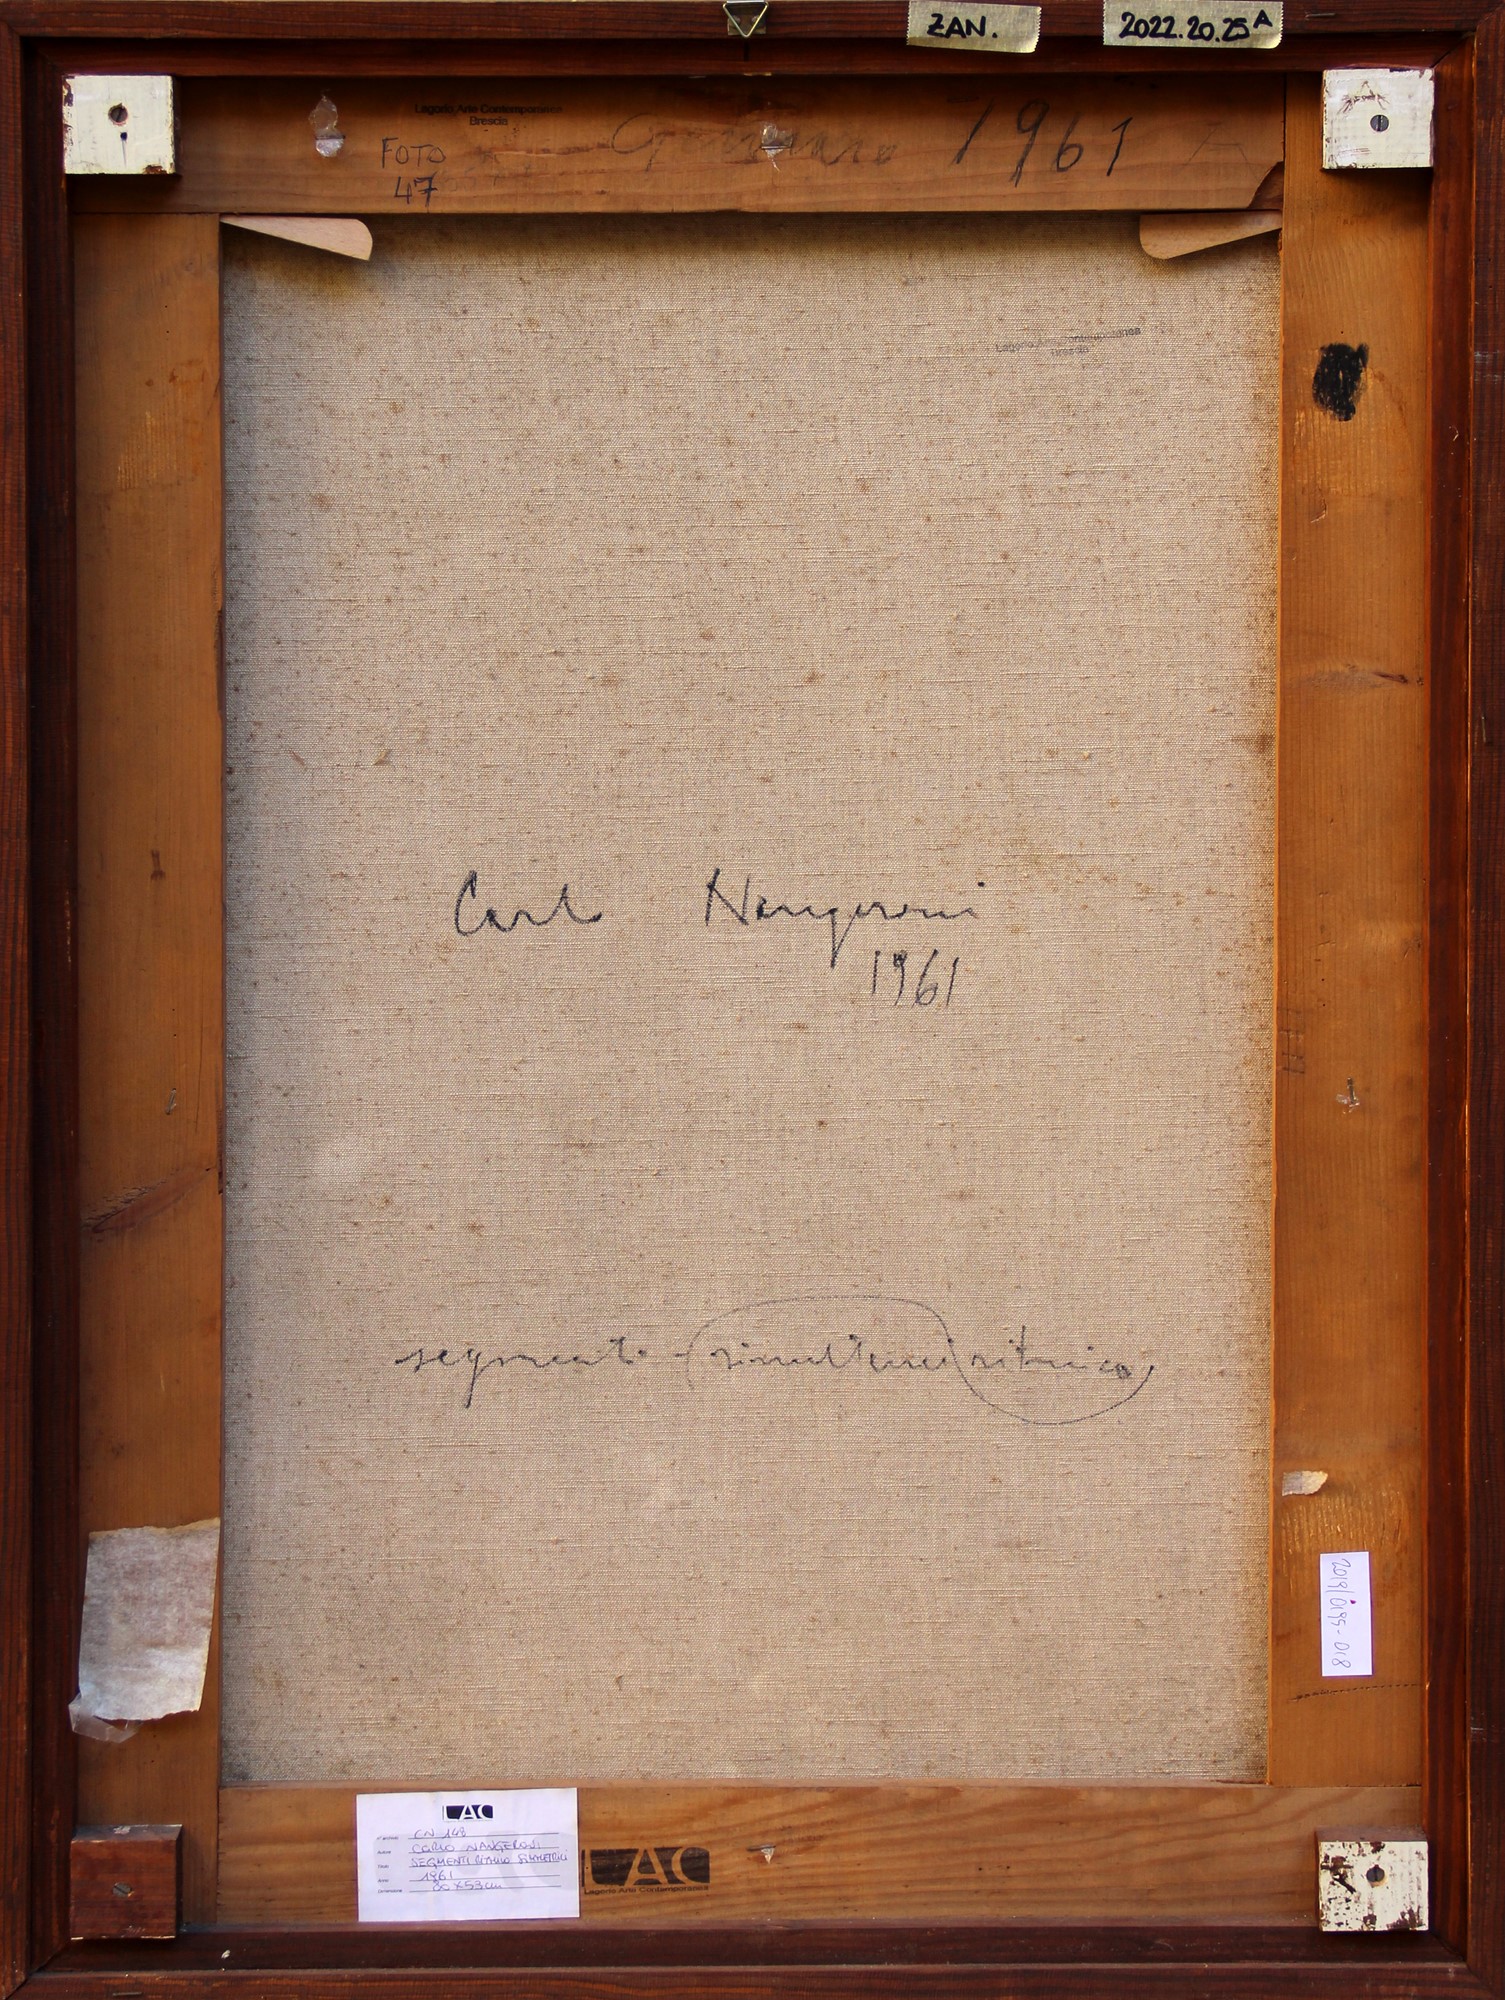 ZAN. 2022.20.25A
Lagorio Arte Contemporanea
Brescia
FOTO
47
1961
Lagorio Arte Contemporanea
Brescia
Carlo Nangeroni
1961
segmenti simultanei ritmico
2019/0195-018
LAC
CN 148
CARLO NANGERONI
SEGMENTI RITMICO SIMMETRICI
1961
80x53cm
LAC
Lagorio Arte Contemporanea